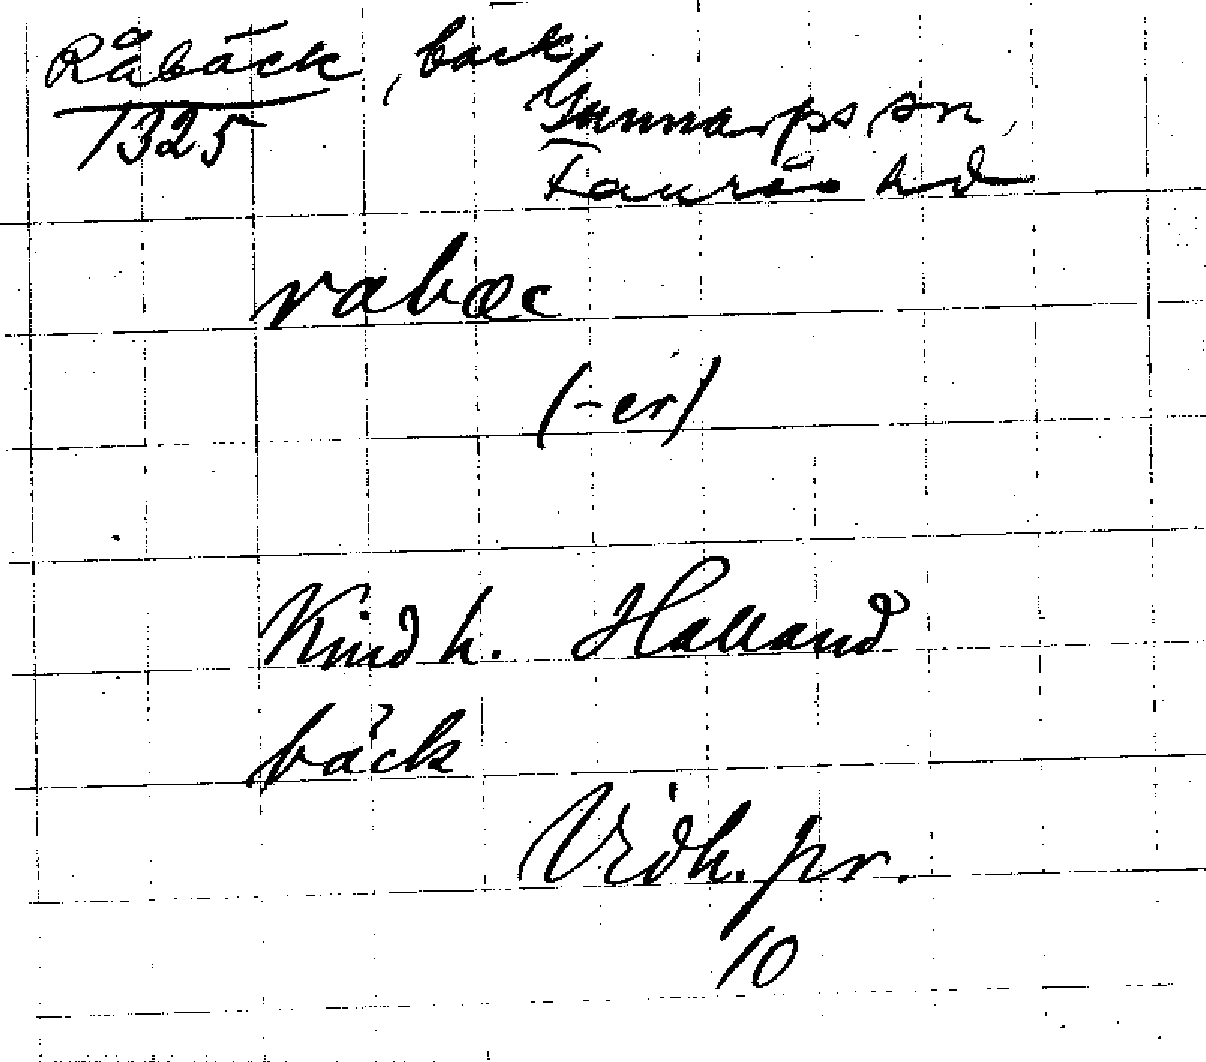 Råbäck, bäck
1325 Gunnarps sn,
Faurås hd
rabæc
(-er)
Kind h. Halland
bäck
Vidh. pr.
10